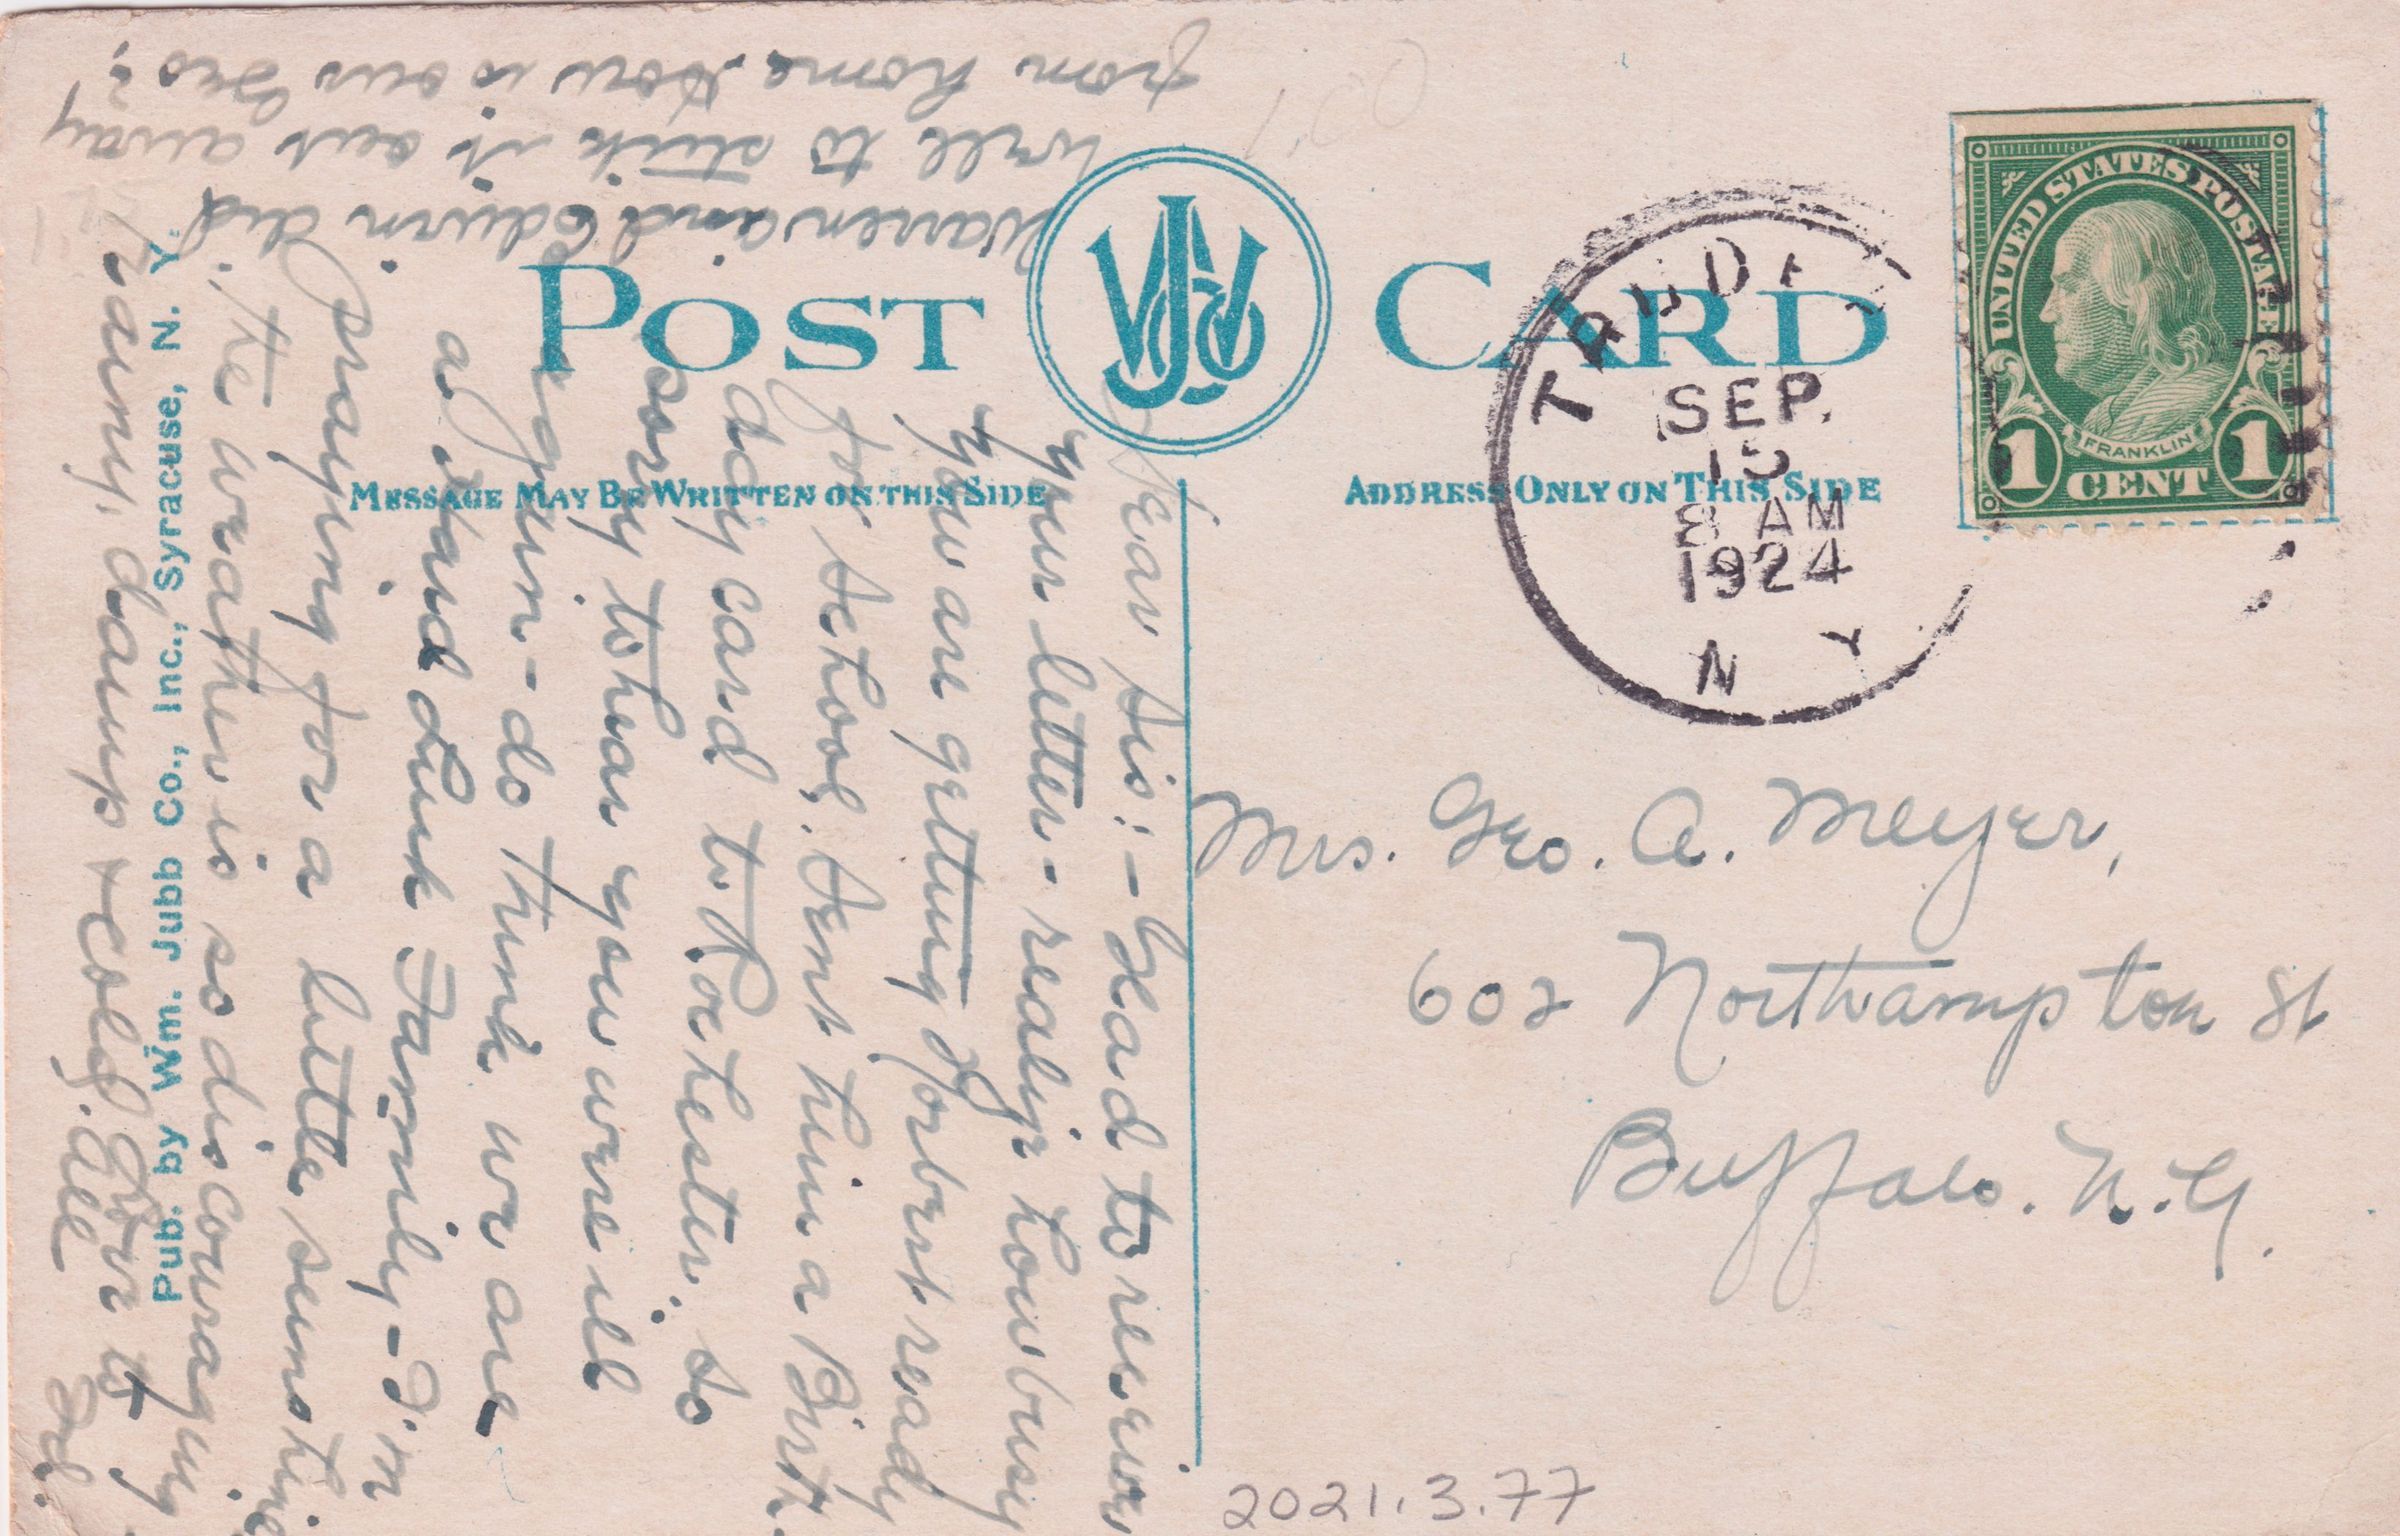 POST CARD
WJCO
MESSAGE MAY BE WRITTEN ON THIS SIDE
ADDRESS ONLY ON THIS SIDE
SEP.
15
8 AM
1924
N Y
UNITED STATES POSTAGE
FRANKLIN
1 CENT 1
Mrs. Geo. A. Meyer,
602 Northampton St
Buffalo. N.Y.
2021.3.77
Pub. by Wm. Jubb Co., Inc., Syracuse, N. Y.
Dear Sis:- Glad to receive
your letter- realize how busy
you are getting Norbert ready
for school. Sent him a Birth
day card to Rochester. So
sorry to hear you were ill
again - do think we are
a Hard Luck Family - I'm
praying for a little sunshine
. The weather is so discouraging
rainy, damp + cold. Love to
all
Warren and Edwin did
well to stick it out away
from home. How is our Geo?